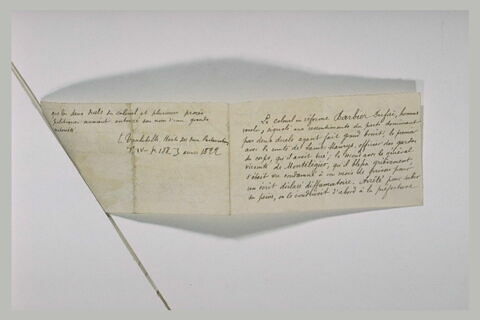 que les deux duels du colonel et plusieurs procès
politiques avaient entouré son nom d'une grande
célébrité
Le colonel en réforme Barbier Dufaï, homme
résolu, signalé aux ressentiments du parti dominant
par deux duels ayant fait grand bruit, le premier
avec le comte de Saint-Maurys, officier des gardes
du corps, qu'il avait tué; le second avec le général
vicomte de Montélégier, qu'il blessa grièvement,
s'était vu condamné à un mois de prison pour
un écrit déclaré diffamatoire. Arrêté pour subir
sa peine, on le conduisit d'abord à la préfecture